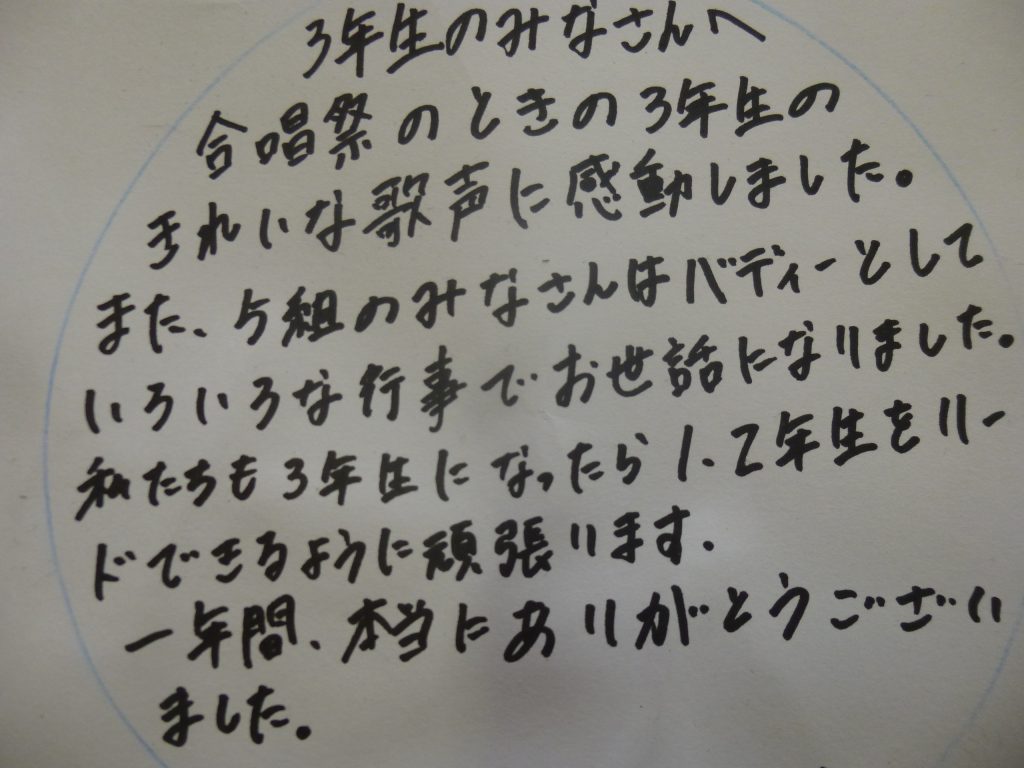 3年生のみなさんへ
合唱祭のときの3年生の
きれいな歌声に感動しました。
また、5組のみなさんはバディーとして
いろいろな行事でお世話になりました。
私たちも3年生になったら1.2年生をリー
ドできるように頑張ります.
一年間、本当にありがとうござい
ました。